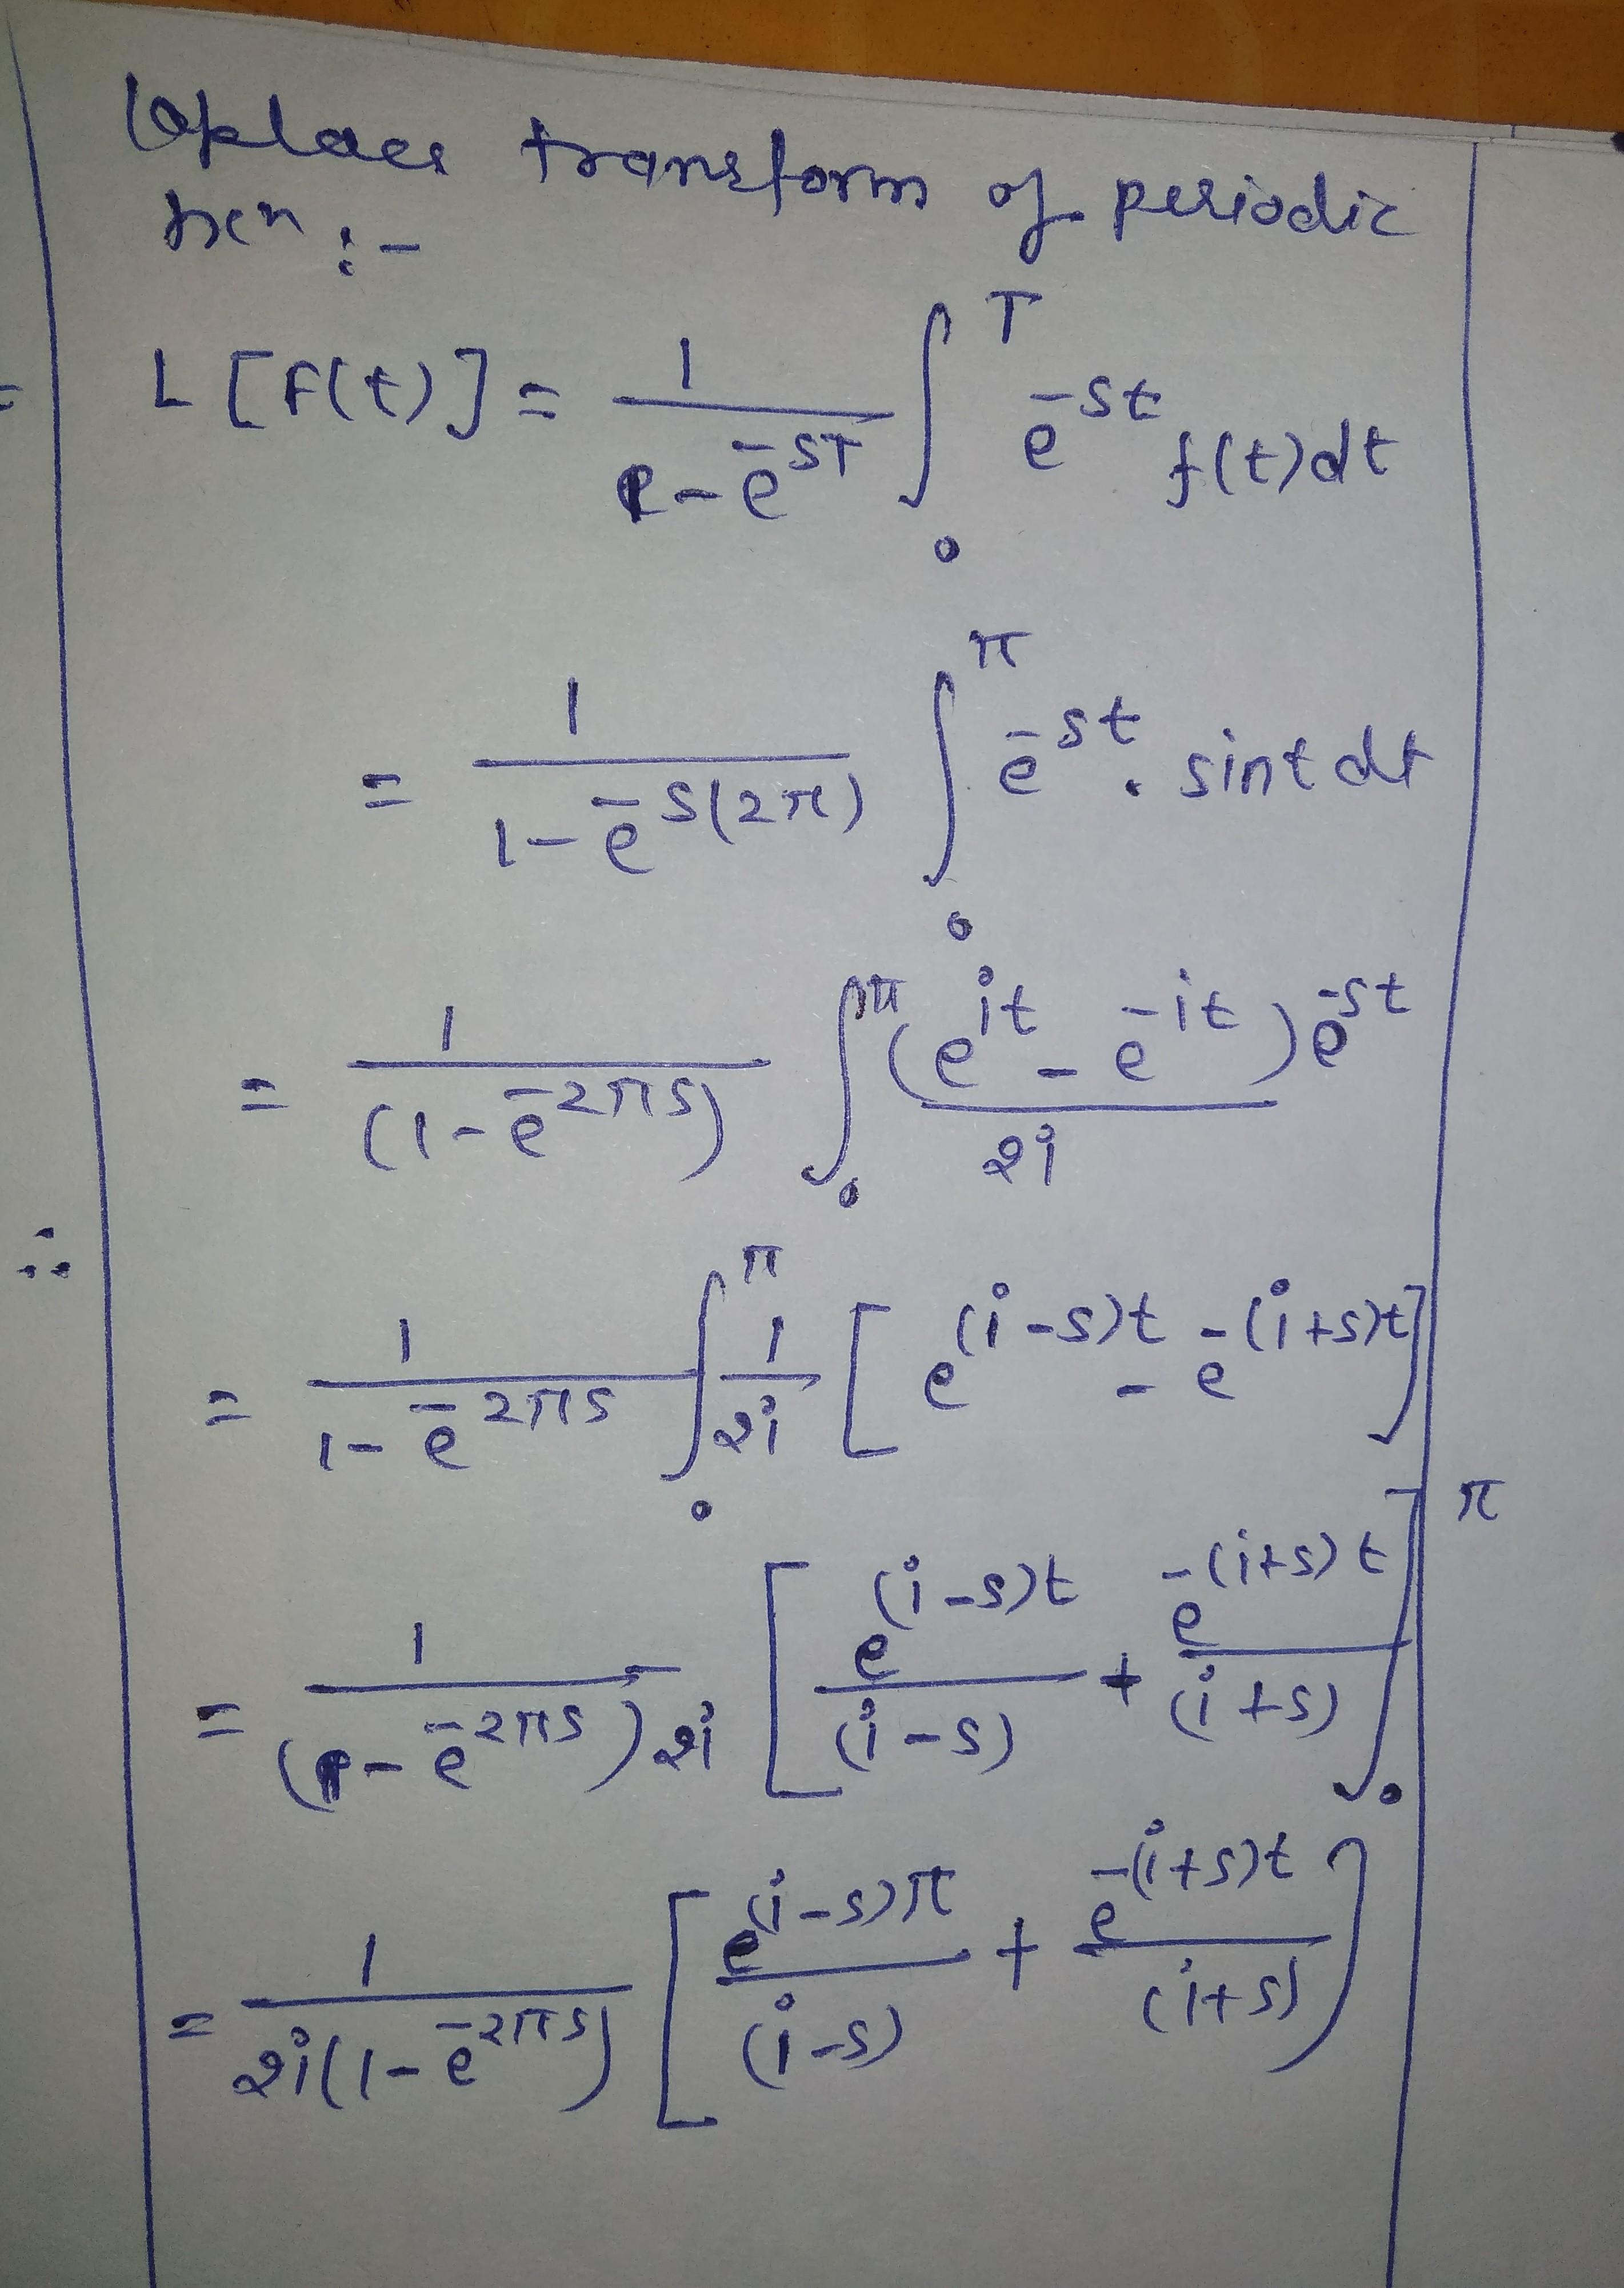 Laplace transform of periodic
fxn :-
= L [F(t)] = 1/(1 - e^{-sT}) ∫_0^T e^{-st} f(t) dt
= 1/(1 - e^{-s(2π)}) ∫_0^π e^{-st} . sint dt
= 1/(1 - e^{-2πs}) ∫_0^π (e^{it} - e^{-it})/2i e^{-st}
∴
= 1/(1 - e^{-2πs}) ∫_0^π 1/2i [e^{(i-s)t} - e^{-(i+s)t}]
= 1/((1 - e^{-2πs}) 2i) [e^{(i-s)t}/(i-s) + e^{-(i+s)t}/(i+s)]_0^π
= 1/(2i(1 - e^{-2πs})) [e^{(i-s)π}/(i-s) + e^{-(i+s)t}/(i+s)]